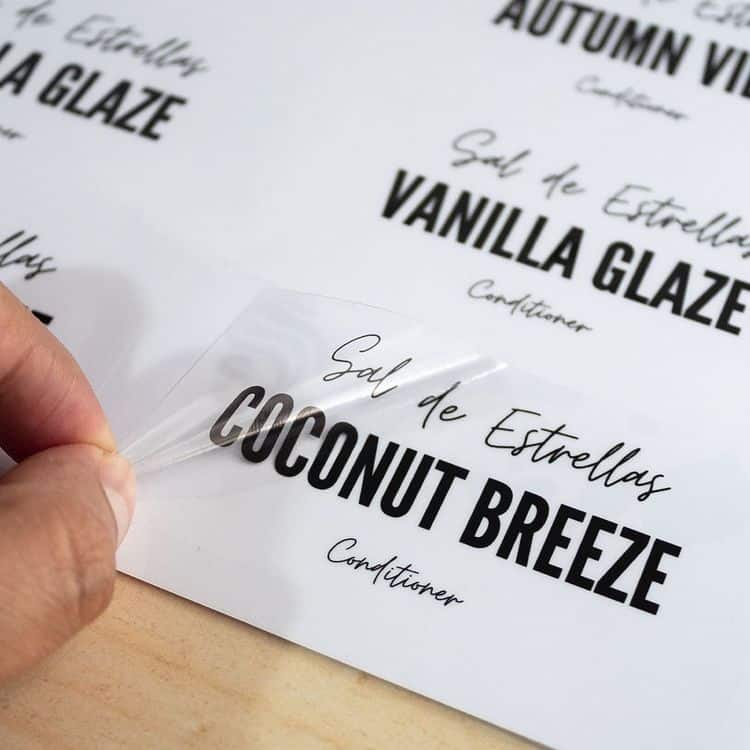 de Estrellas
LA GLAZE
Sal de Estrellas
AUTUMN
Conditioner
Sal de Estrellas
VANILLA GLAZE
Conditioner
Sal de Estrellas
COCONUT BREEZE
Conditioner